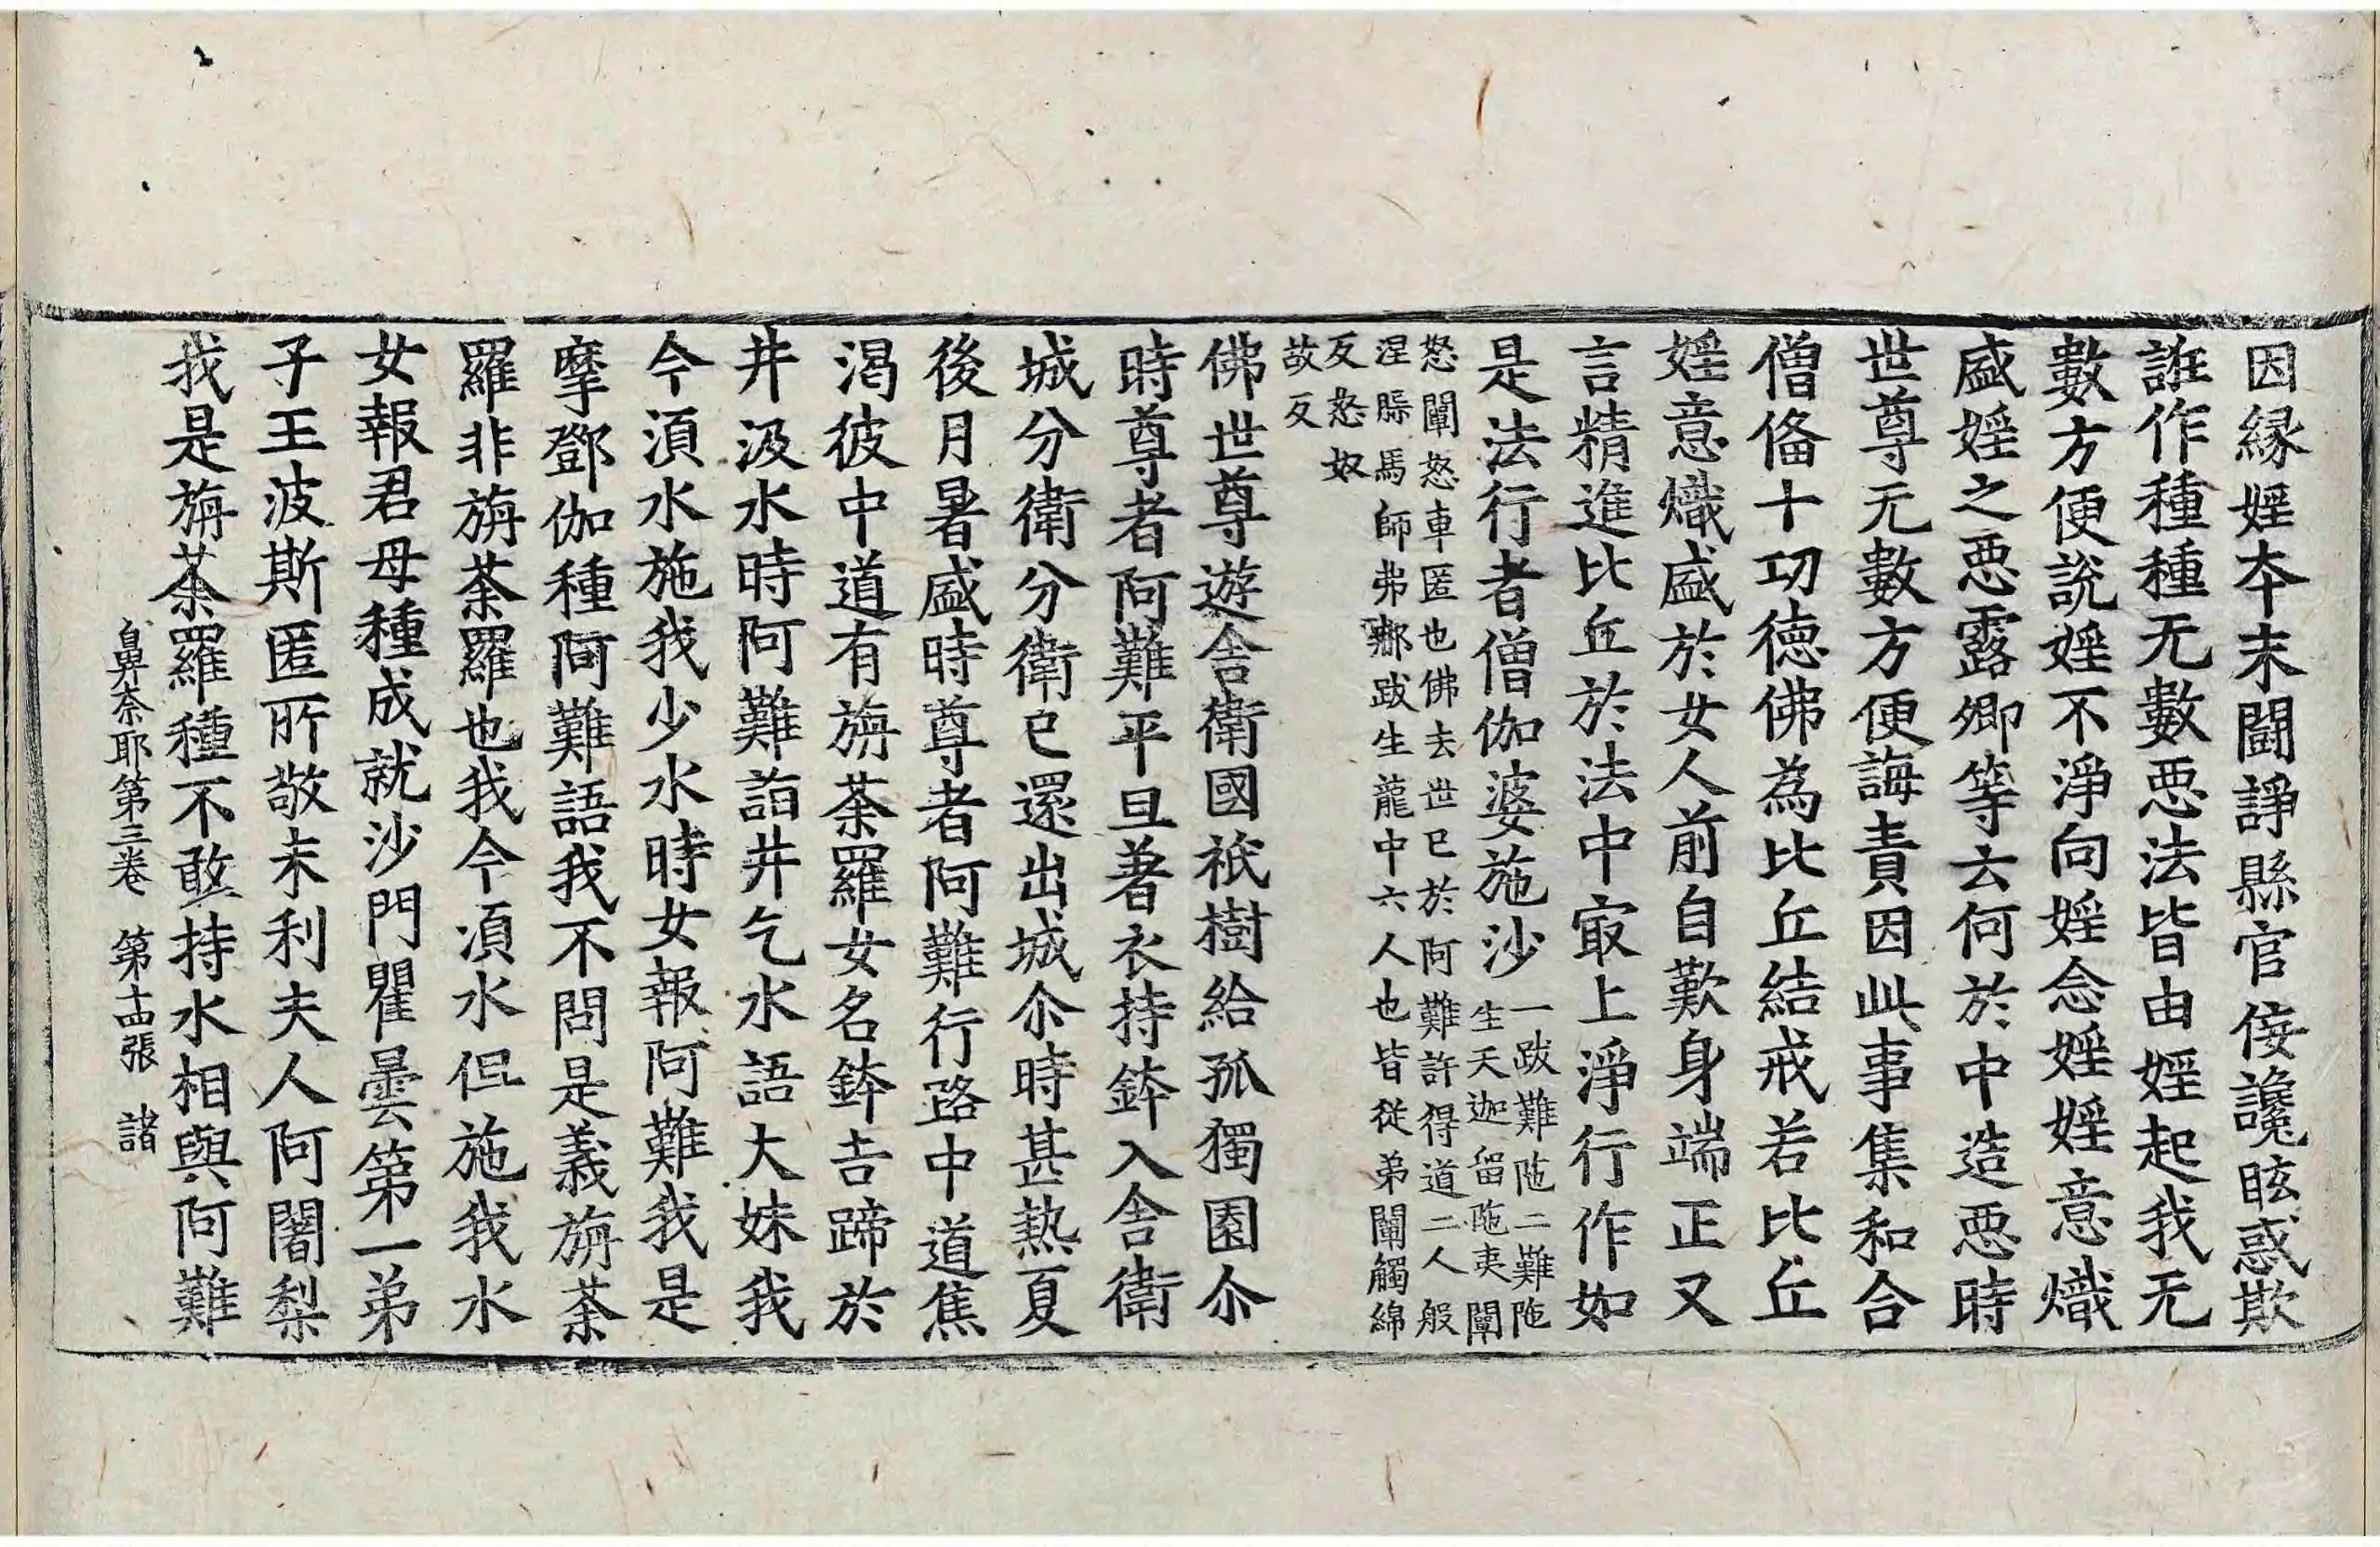 因緣婬本末鬪諍縣官侫讒眩惑欺
誑作種種无數惡法皆由婬起我无
數方便說婬不淨向婬念婬婬意熾
盛婬之惡露卿等云何於中造惡時
世尊无數方便誨責因此事集和合
僧俻十功德佛為比丘結戒若比丘
婬意熾盛於女人前自歎身端正又
言精進比丘於法中㝡上淨行作如
是法行者僧伽婆施沙
一跋難陁二難陁
生天迦留陁夷闡
怒闡怒車匿也佛去世已於阿難許得道二人般
涅縣馬師弗郍跋生龍中六人也皆從弟闡觸綿
反怒奴
故反
佛世尊遊舍衛國祇樹給孤獨園尒
時尊者阿難平旦著衣持鉢入舍衛
城分衛分衛已還出城尒時甚熱夏
後月暑盛時尊者阿難行路中道焦
渴彼中道有旃荼羅女名鉢吉蹄於
井汲水時阿難詣井乞水語大妹我
今湏水施我少水時女報阿難我是
摩鄧伽種阿難語我不問是義旃荼
羅非旃荼羅也我今湏水但施我水
女報君母種成就沙門瞿曇第一弟
子王波斯匿所敬末利夫人阿闍梨
我是旃荼羅種不敢持水相與阿難
鼻奈耶第三卷 第十四張 諸